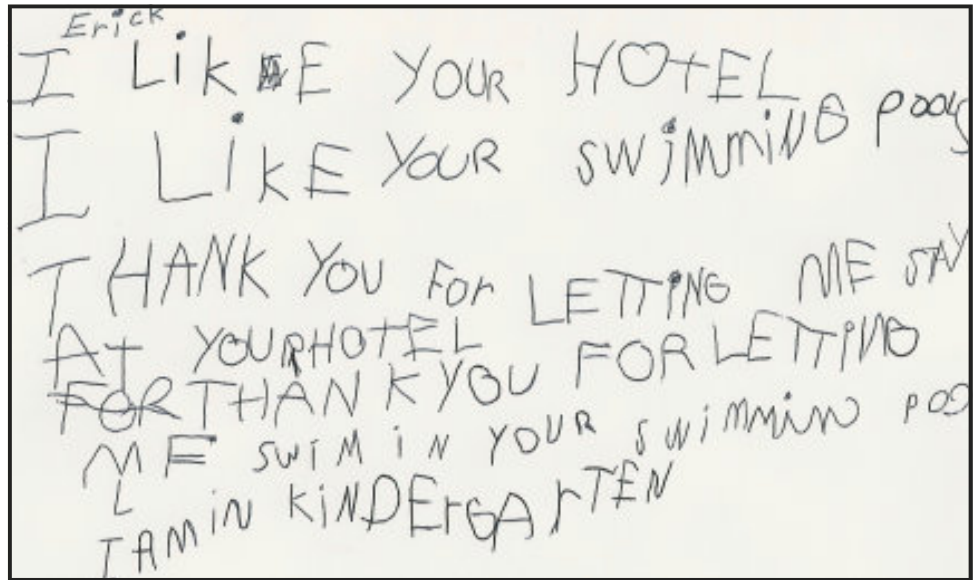 Erick
I LikE YOUR HOTEL
I LikE YOUR SWiMMiNG pools
THANK YOU For LETTiNG ME SAY
AT YOUR HOTEL
FOR THANK YOU FOR LETTiNG
ME SWiM iN YOUR SWiMMiN POO
L
I AM iN KiNDErGArTEN